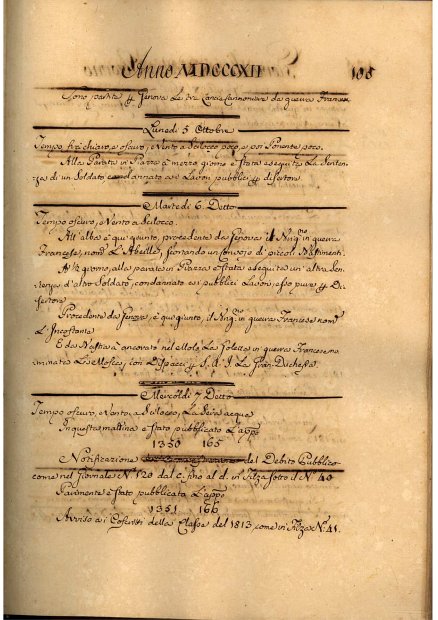 Anno MDCCCXII 105
Sono partite p Genova Le tre Lancie Cannoniere da guerra Francesi
Lunedi 5 Ottobre
Tempo frà chiaro, e oscuro, Vento a Scilocco poco, e poi Ponente poco.
Alla Parata in Piazza à mezzo giorno è stata eseguita La Senten-
za di un Soldato condannato ai Lavori pubblici p disertore
Martedi 6. Detto
Tempo oscuro, e Vento a Scilocco.
All'alba è qui giunto, procedente da Genova il in guerra
Francese, nom.o L'Abeille, scortando un Convojo di piccoli Bastimenti.
A 1/2 giorno, alla parata in Piazza è stata eseguita un'altra Sen-
tenza d'altro Soldato, condannato ai pubblici Lavori esso pure p Di-
sertore
Procedente da Genova, è quì giunto, il in guerra Francese nom.o
L'Incostante
E da Bastia à ancorato nel Molo, La Goletta in guerra Francese no-
minata Le Mosce, con Dispacci p S. A. I. La Gran-Duchessa.
Mercoldi 7 Detto
Tempo oscuro, Vento a Scilocco, La Sera acqua
In questa mattina è stato pubblicato L'app.o
1350 165
Notificazione del Debito Pubblico
come nel Giornale N.o 120 dal c. fino al d. in Filza sotto il N.o 40
Parimente è stato pubblicata L'app.o
1351 166
Avviso ai Coscritti della Classe del 1813, come in Filza N.o 41.